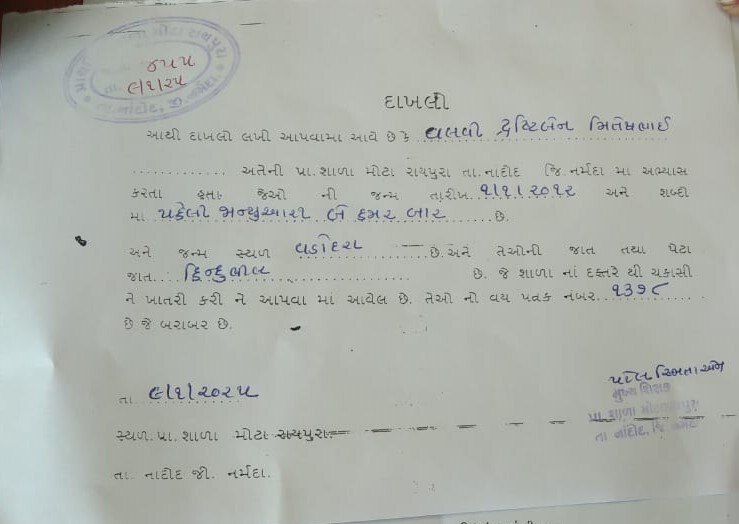 મોટા રાયપુરા
૯/૧/૨૫
તા. નાંદોદ, જી. નર્મદા
દાખલો
આથી દાખલો લખી આપવામા આવે છે કે વલવી દ્રષ્ટિબેન મિતેષભાઈ
અત્રેની પ્રા.શાળા મોટા રાયપુરા તા.નાદોદ જિ.નર્મદા મા અભ્યાસ
કરતા હતા. જેઓ ની જન્મ તારીખ ૧/૧/૨૦૧૨ અને શબ્દી
મા પહેલી જાન્યુઆરી બે હજાર બાર છે.
અને જન્મ સ્થળ વડોદરા છે.અને તેઓની જાત તથા પેટા
જાત હિન્દુભીલ છે. જે શાળા નાં દફતરે થી ચકાસી
ને ખાતરી કરી ને આપવા માં આવેલ છે. તેઓ નો વય પત્રક નંબર ૧૩૭૮
છે જે બરાબર છે.
પટેલ સ્મિતા એમ
તા ૯/૧/૨૦૨૫
મુખ્ય શિક્ષક
પ્રા.શાળા મોટા રાયપુરા
સ્થળ.પ્રા.શાળા મોટા રાયપુરા
તા નાંદોદ. જિ નર્મદા
તા. નાદોદ જી. નર્મદા.